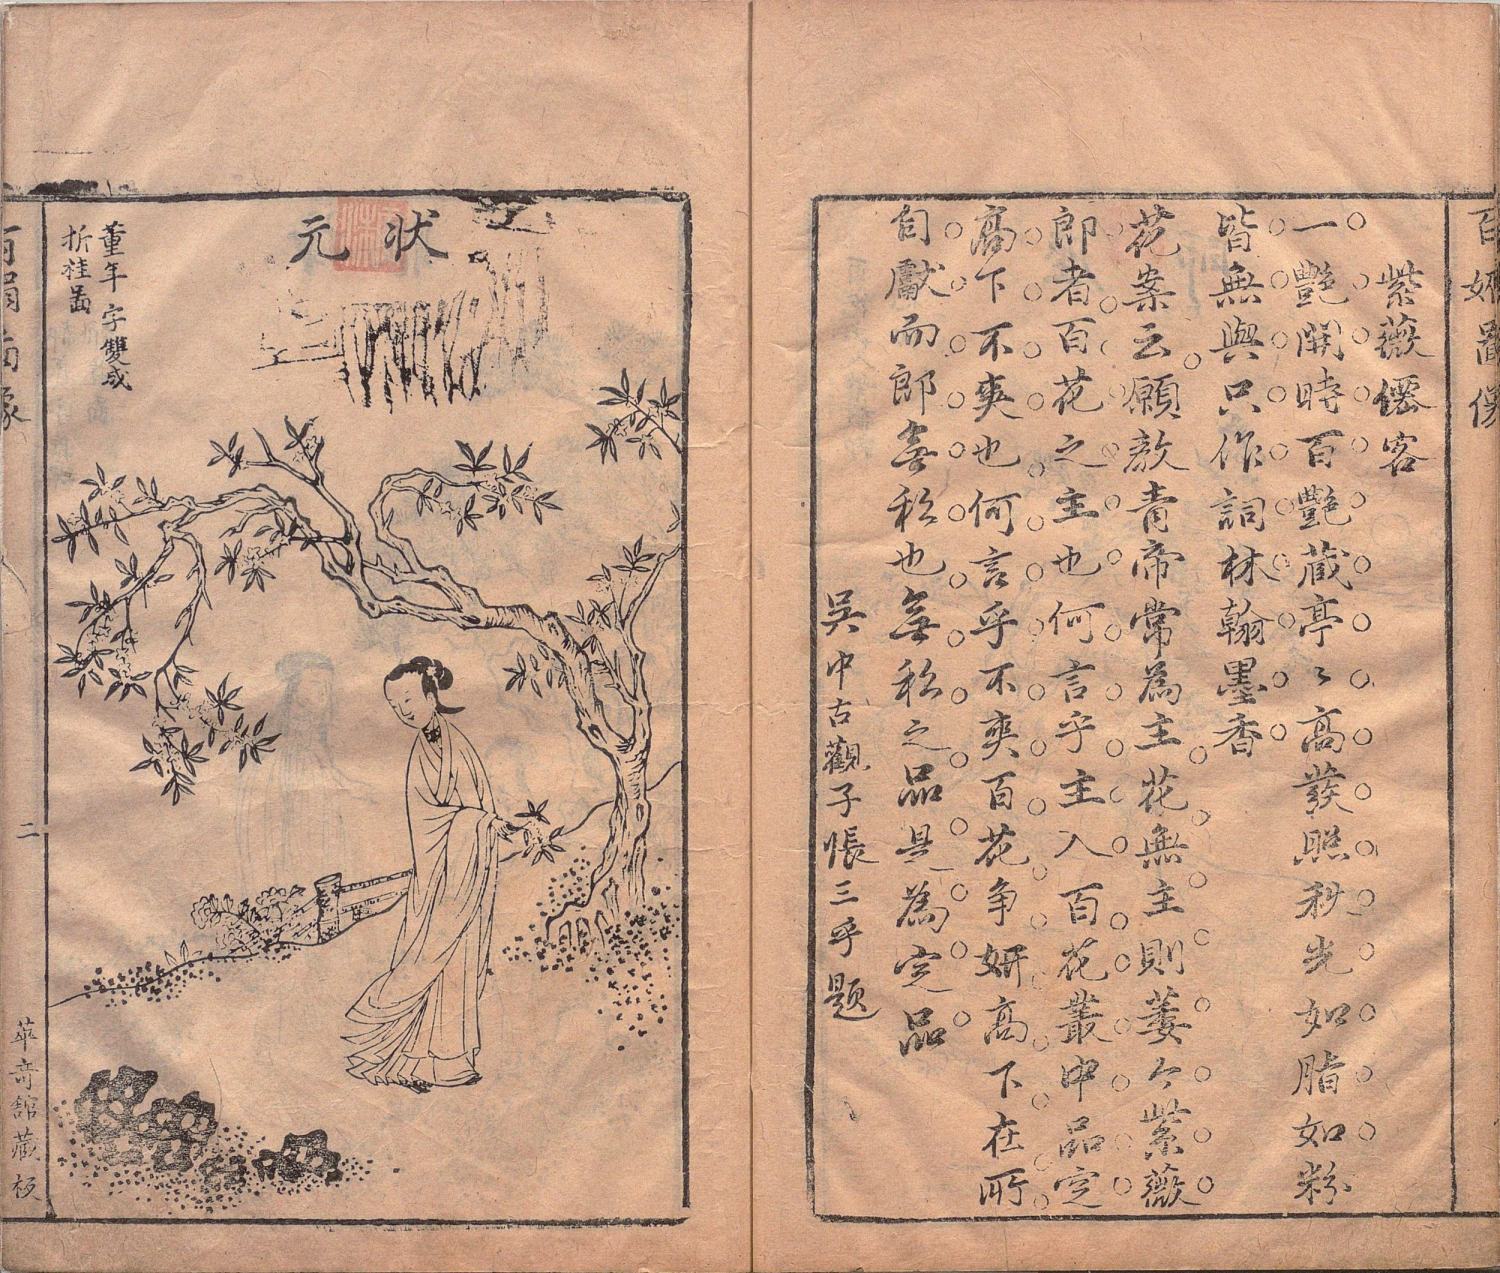 百姸圖像
紫薇僊客
一艷開時百艷蔵亭〻高發照秋光如脂如粉
皆無與只作詞林翰墨香
花案云願教青帝常為主花無主則萎今紫薇
郎者百花之主也何言乎主入百花叢中品定
高下不爽也何言乎不爽百花争妍高下在所
自獻而郎無私也無私之品是為定品
吳中古觀子悵三乎題
状元
董年字雙成
折桂啚
百媚啚像
二
萃奇舘藏板